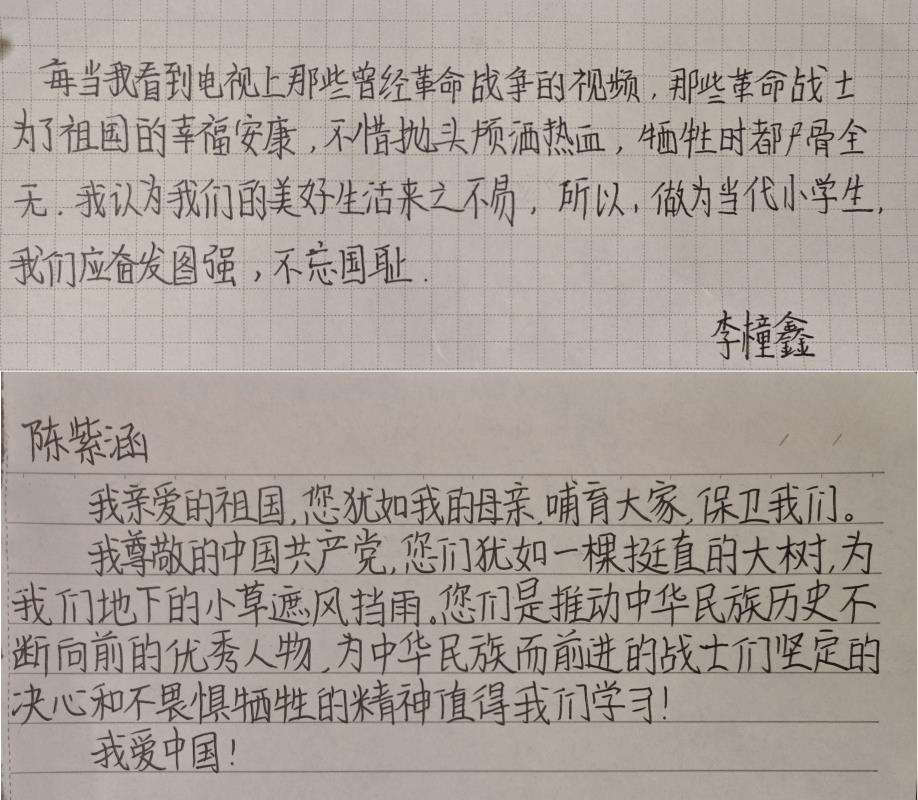 每当我看到电视上那些曾经革命战争的视频，那些革命战士
为了祖国的幸福安康，不惜抛头颅洒热血，牺牲时都尸骨全
无．我认为我们的美好生活来之不易，所以，做为当代小学生，
我们应奋发图强，不忘国耻．
李橦鑫
陈紫涵
我亲爱的祖国,您犹如我的母亲,哺育大家,保卫我们。
我尊敬的中国共产党,您们犹如一棵挺直的大树,为
我们地下的小草遮风挡雨。您们是推动中华民族历史不
断向前的优秀人物,为中华民族而前进的战士们坚定的
决心和不畏惧牺牲的精神值得我们学习!
我爱中国!